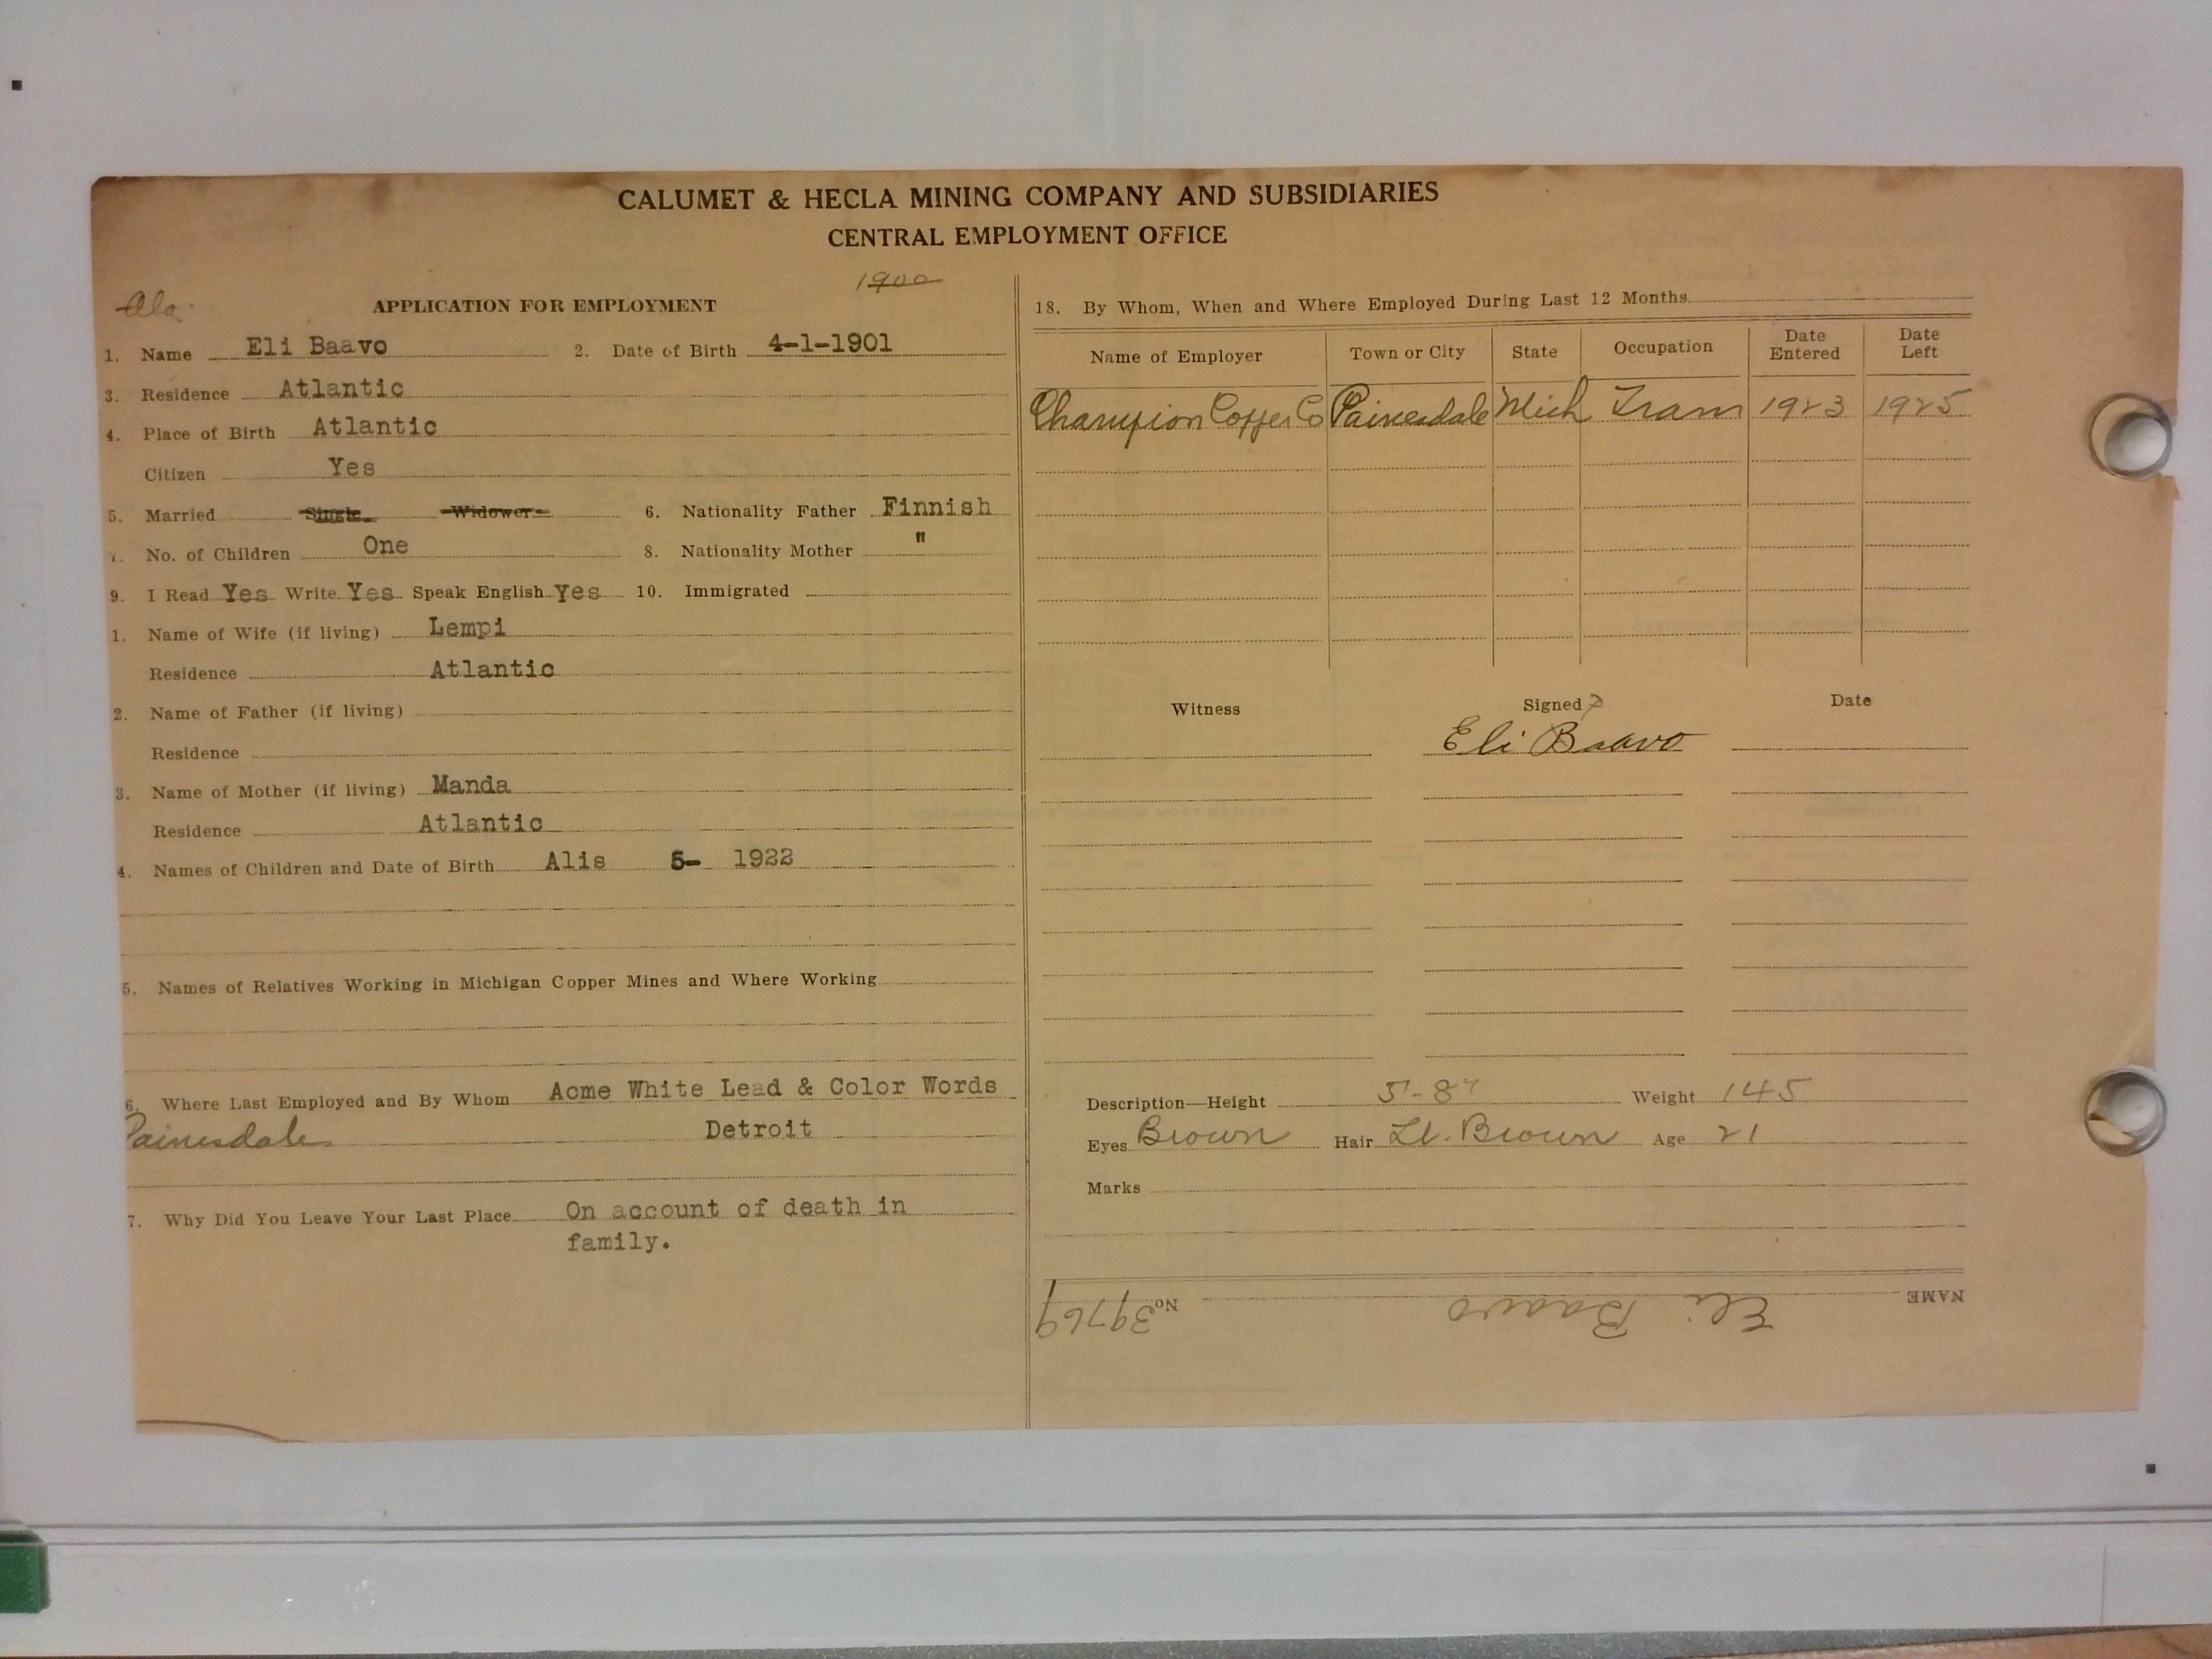 CALUMET & HECLA MINING COMPANY AND SUBSIDIARIES
CENTRAL EMPLOYMENT OFFICE
1900
APPLICATION FOR EMPLOYMENT
1. Name Eli Baavo 2. Date of Birth 4-1-1901
3. Residence Atlantic
4. Place of Birth Atlantic
Citizen Yes
5. Married Single Widower 6. Nationality Father Finnish
7. No. of Children One 8. Nationality Mother "
9. I Read Yes Write Yes Speak English Yes 10. Immigrated
1. Name of Wife (if living) Lempi
Residence Atlantic
2. Name of Father (if living)
Residence
3. Name of Mother (if living) Manda
Residence Atlantic
4. Names of Children and Date of Birth Alis 5- 1922
5. Names of Relatives Working in Michigan Copper Mines and Where Working
6. Where Last Employed and By Whom Acme White Lead & Color Words
Painesdale Detroit
7. Why Did You Leave Your Last Place On account of death in
family.
18. By Whom, When and Where Employed During Last 12 Months
Name of Employer Town or City State Occupation Date Entered Date Left
Champion Copper Co Painesdale Mich Tram 1923 1925
Witness Signed Date
Eli Baavo
Description—Height 5'-8" Weight 145
Eyes Brown Hair Lt. Brown Age 21
Marks
NAME Eli Baavo No. 39769